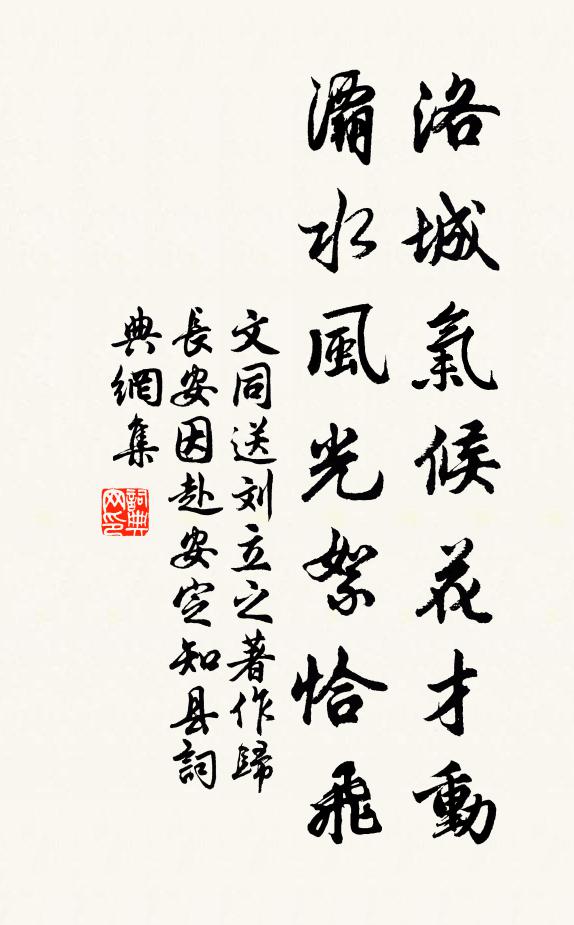 洛城氣候花才動
灞水風光絮恰飛
文同送刘立之著作歸
長安因赴安定知县詞
典網集
詞典網印